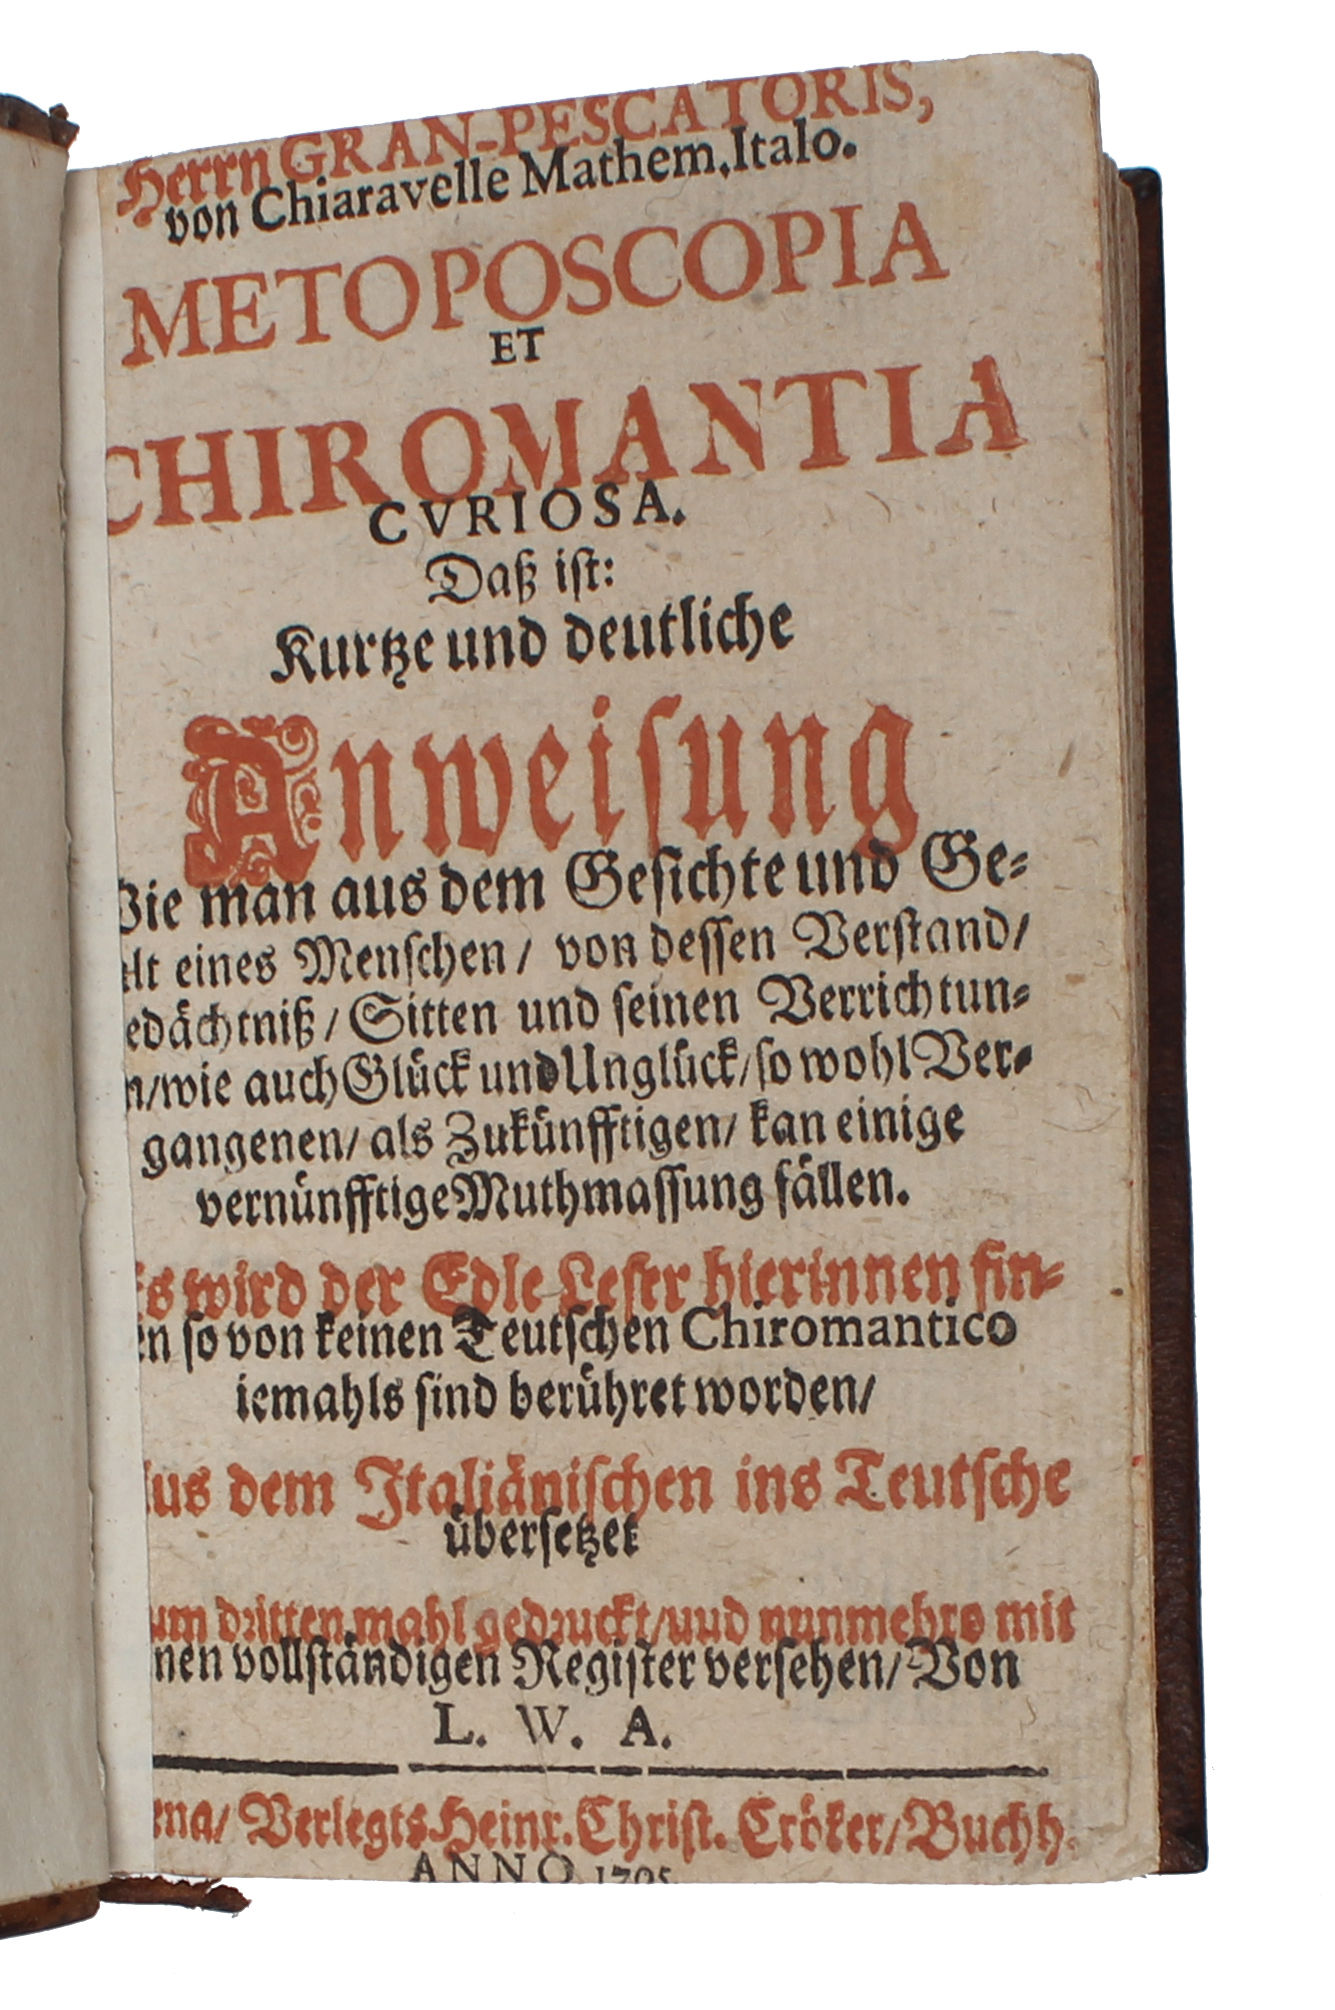 Herrn GRAN-PESCATORIS,
von Chiaravelle Mathem. Italo.
METOPOSCOPIA
ET
CHIROMANTIA
CVRIOSA.
Daß ist:
Kurtze und deutliche
Anweisung
Wie man aus dem Gesichte und Ge-
lt eines Menschen/ von dessen Verstand/
edächtniß/ Sitten und seinen Verrichtun-
n/wie auch Glück und Unglück/so wohl Ver-
gangenen/ als Zukünfftigen/ kan einige
vernünfftige Muthmassung fällen.
Es wird der Edle Leser hierinnen fin-
en so von keinen Teutschen Chiromantico
iemahls sind berühret worden/
us dem Italiänischen ins Teutsche
übersetzet
um dritten mahl gedruckt/uud nunmehro mit
nen vollständigen Register versehen/ Von
L. W. A.
ena/ Verlegts Heinr. Christ. Cröker/ Buchh.
ANNO 1705